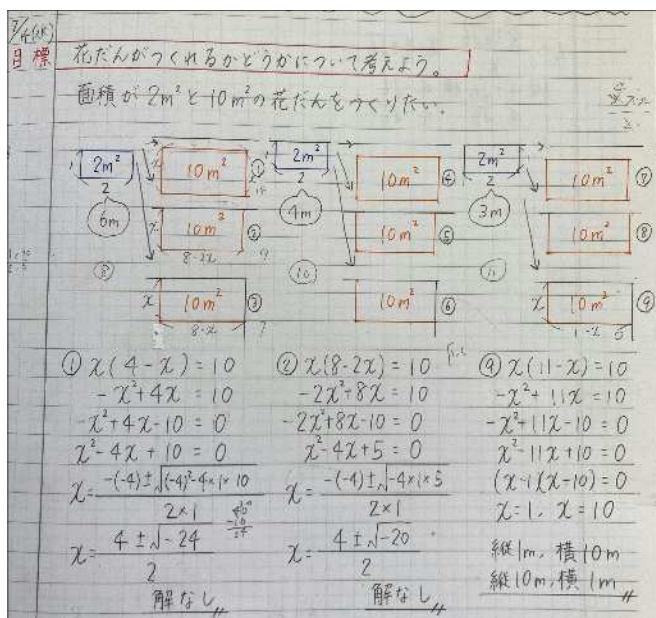 7/4(水)
目標
花だんがつくれるかどうかについて考えよう。
面積が2m²と10m²の花だんをつくりたい。
2m² 10m² ① 2m² 10m² ④ 2m² 10m² ⑦
2 2 2
6m 4m 3m
x 10m² ② 10m² ⑤ 10m² ⑧
8-2x
⑧ ⑩ ⑪
x 10m² ③ 10m² ⑥ x 10m² ⑨
8-x
① x(4-x)=10
-x²+4x=10
-x²+4x-10=0
x²-4x+10=0
x=-(-4)±√(-4)²-4×1×10
2×1
x=4±√-24
2
解なし
② x(8-2x)=10
-2x²+8x=10
-2x²+8x-10=0
x²-4x+5=0
x=-(-4)±√-4×1×5
2×1
x=4±√-20
2
解なし
⑨ x(11-x)=10
-x²+11x=10
-x²+11x-10=0
x²-11x+10=0
(x-1)(x-10)=0
x=1, x=10
縦1m, 横10m
縦10m, 横1m